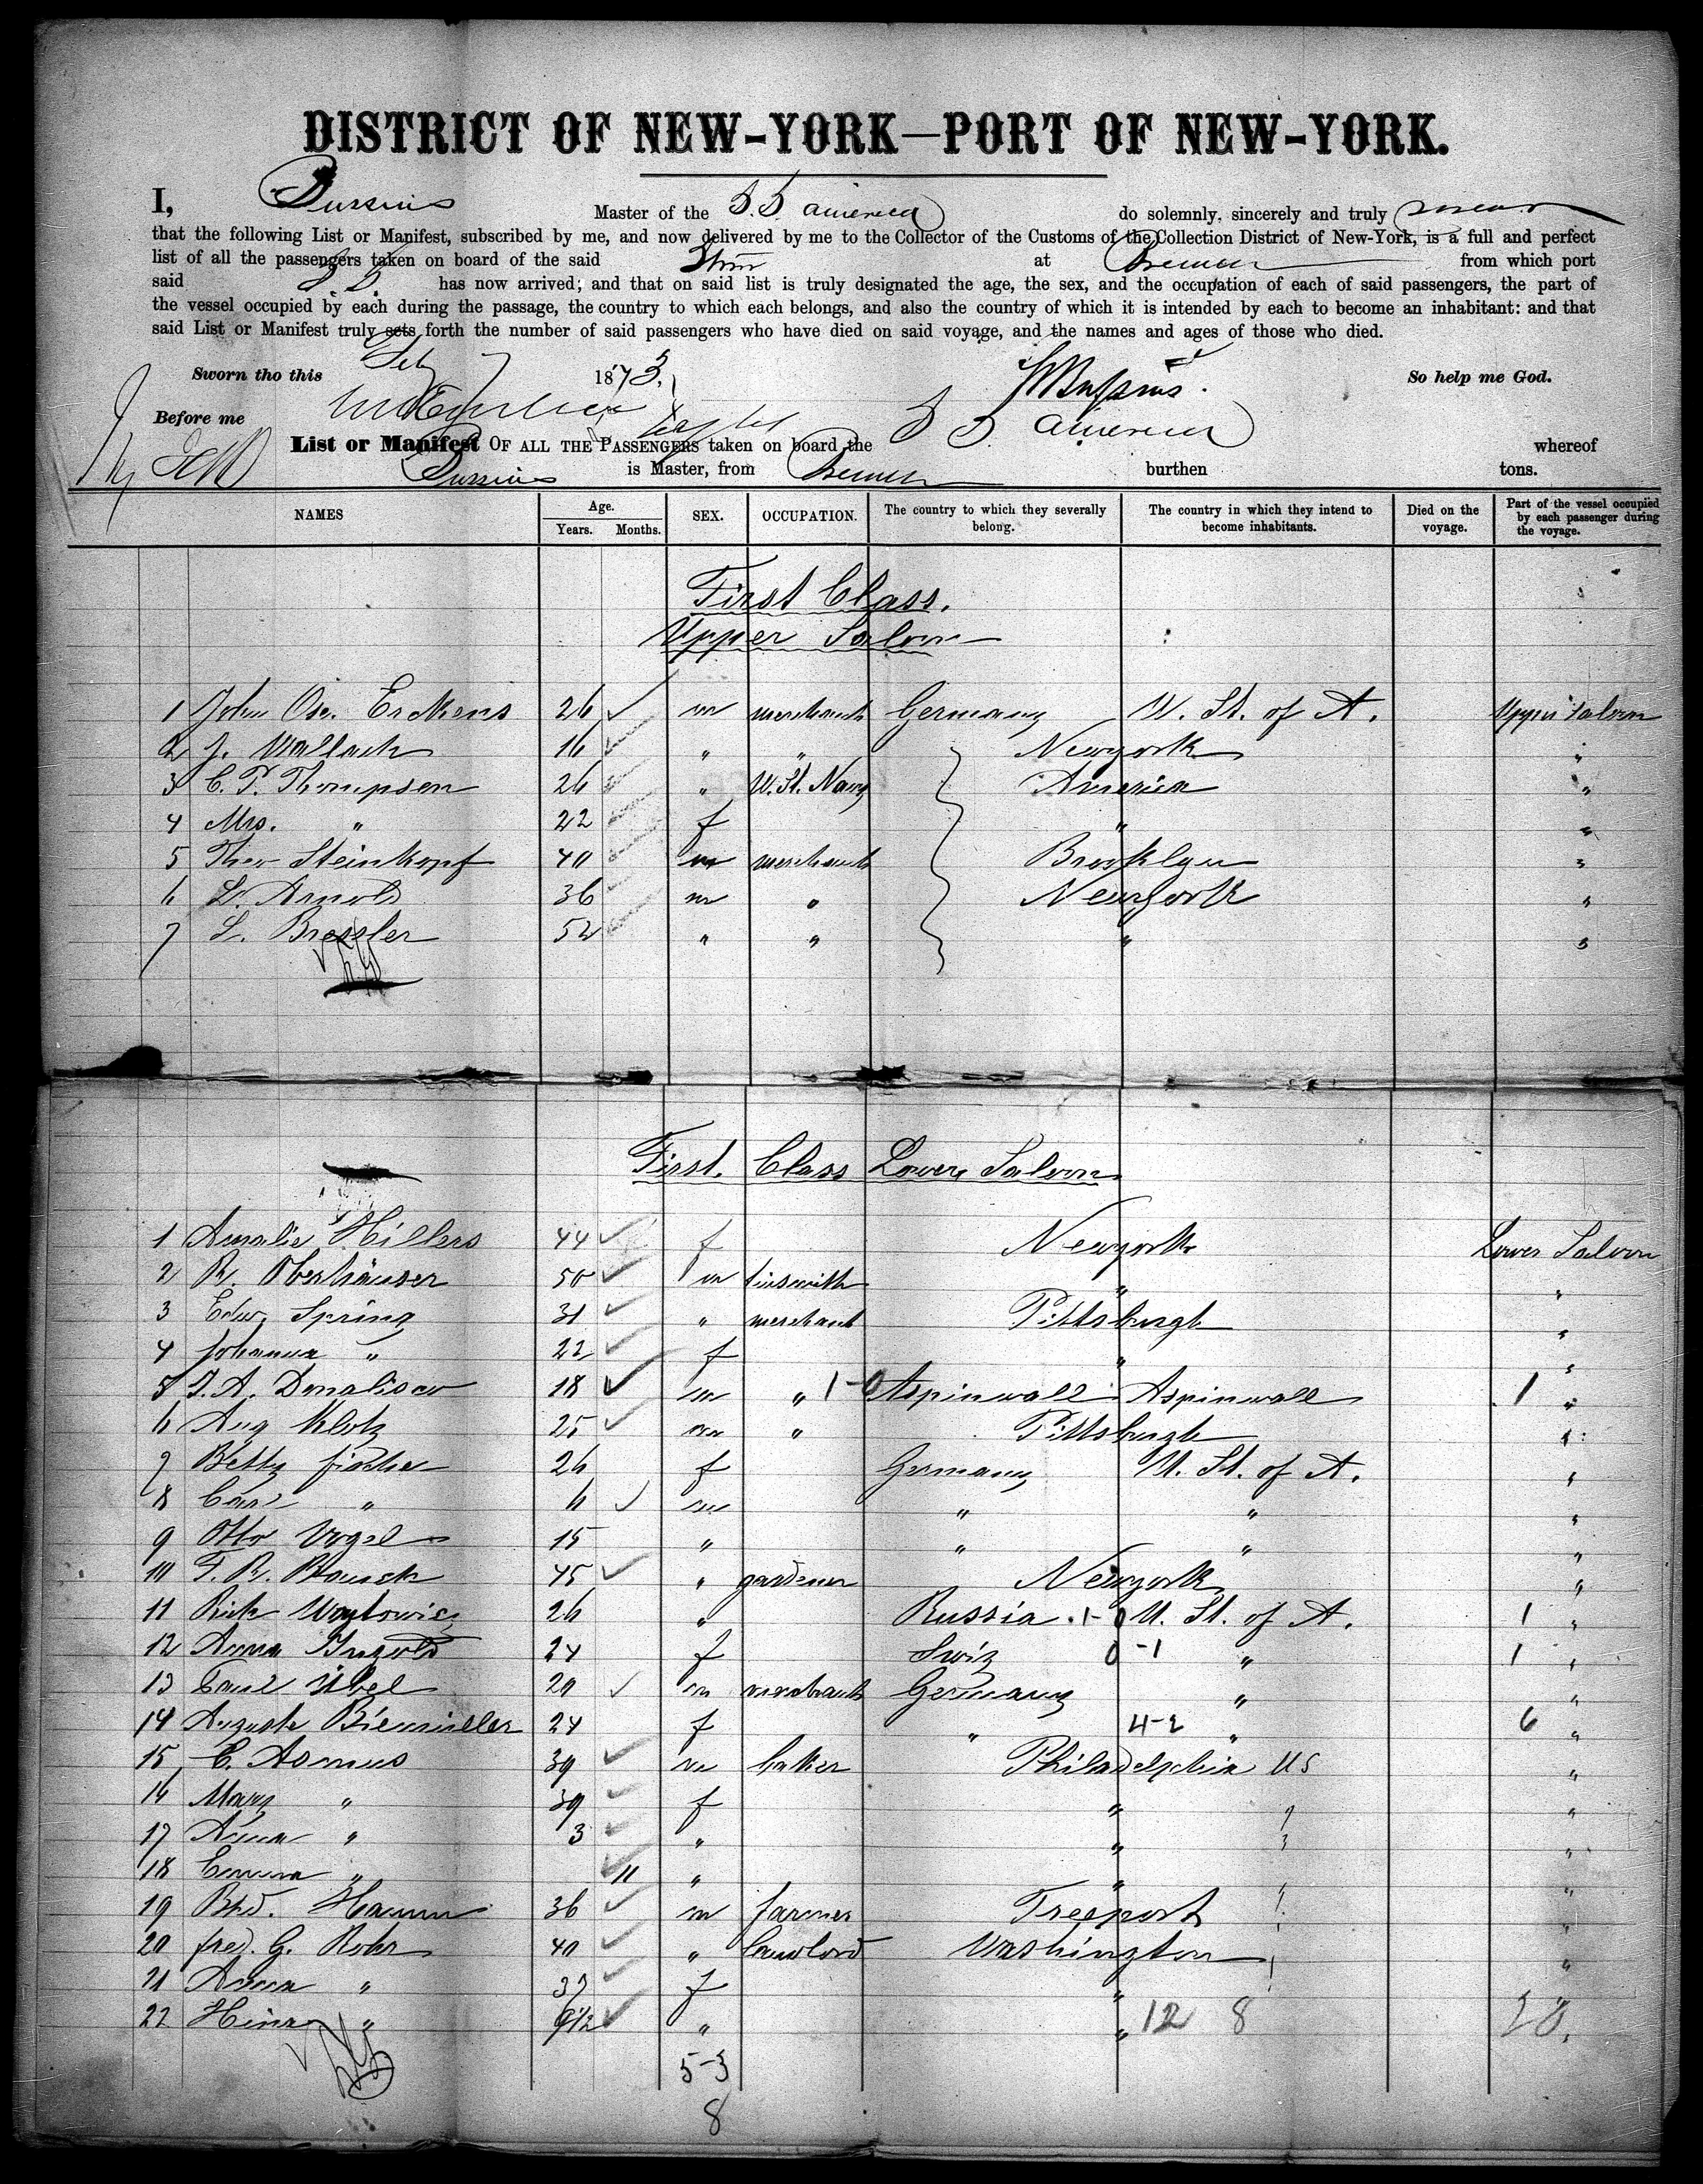 DISTRICT OF NEW-YORK—PORT OF NEW-YORK.
I, Bussius Master of the S.S. America do solemnly, sincerely and truly swear
that the following List or Manifest, subscribed by me, and now delivered by me to the Collector of the Customs of the Collection District of New-York, is a full and perfect
list of all the passengers taken on board of the said Stmr at Bremen from which port
said S.S. has now arrived; and that on said list is truly designated the age, the sex, and the occupation of each of said passengers, the part of
the vessel occupied by each during the passage, the country to which each belongs, and also the country of which it is intended by each to become an inhabitant: and that
said List or Manifest truly sets forth the number of said passengers who have died on said voyage, and the names and ages of those who died.
Sworn tho this Feb 7 1873. So help me God.
Before me
List or Manifest OF ALL THE PASSENGERS taken on board the S S America whereof
Bussius is Master, from Bremen burthen tons.
NAMES Age. Years. Months. SEX. OCCUPATION. The country to which they severally belong. The country in which they intend to become inhabitants. Died on the voyage. Part of the vessel occupied by each passenger during the voyage.
First Class.
Upper Saloon
1 John Osc. Erckens 26 m merchant Germany U. St. of A. Upper Saloon
2 J. Wallach 16 " " Newyork "
3 C. P. Thompson 26 " U. St. Navy America "
4 Mrs. " 22 f " "
5 Theo Steinkopf 40 m merchant Brooklyn "
6 L. Arnold 36 m " Newyork "
7 L. Bressler 52 " " " "
First. Class Lower Saloon
1 Amalie Hillers 44 f Newyork Lower Saloon
2 R. Oberhäuser 50 m tinsmith " "
3 Edw. Spring 31 " merchant Pittsburgh "
4 Johanna " 22 f " "
5 A. Donalisco 18 m " 1-0 Aspinwall Aspinwall 1 "
6 Aug Klotz 25 m " Pittsburgh "
7 Betty 26 f Germany U. St. of A. "
8 Carl " 6 m " " "
9 Otto Vogel 15 " " " "
10 45 " gardener Newyork "
11 26 " Russia 1-0 U. St. of A. 1 "
12 Anna Ingold 24 f Swiz 0-1 " 1 "
13 Übel 20 m merchant Germany " "
14 Auguste Biemüller 24 f " 4-2 " 6 "
15 C. Asmus 39 m baker Philadelphia US "
16 Mary " 39 f " "
17 Anna " 3 " " "
18 Emma " 11 " " "
19 Bhd. Hamm 36 m farmer Freeport "
20 fred. G. Rohr 40 " landlord Washington "
21 Anna " 37 f " "
22 " 9 1/2 " " 12 8 20.
5-3
8